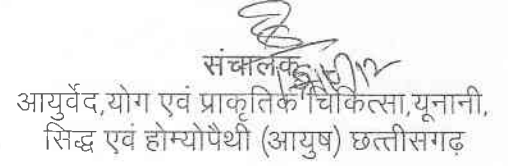 संचालक
आयुर्वेद,योग एवं प्राकृतिक चिकित्सा,यूनानी,
सिद्ध एवं होम्योपैथी (आयुष) छत्तीसगढ़